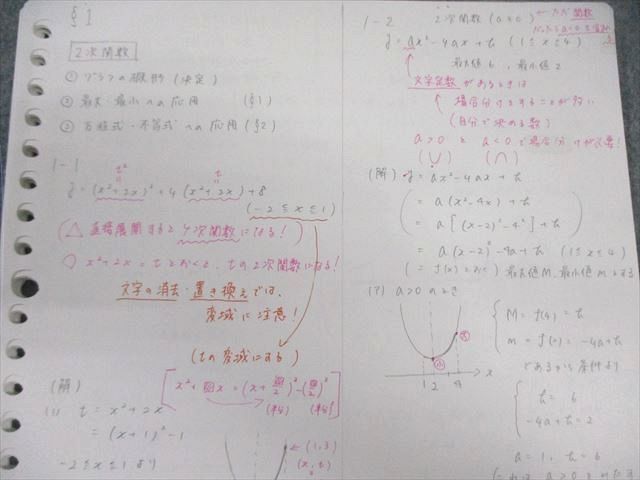 §1
2次関数
① グラフの概形 (決定)
② 最大・最小への応用 (§1)
③ 方程式・不等式への応用 (§2)
1-1
y = (x²+2x)² + 4(x²+2x) + 8
(-2 ≤ x ≤ 1)
(△ 直接展開すると4次関数になる!)
○ x²+2x = t とおくと、tの2次関数になる!
文字の消去・置き換えでは、
変域に注意!
(tの変域にする)
(解)
(1) t = x²+2x
= (x+1)²-1
-2 ≤ x ≤ 1 より
← (1,3)
(x, t)
1-2
2次関数 (a≠0) ← ただ関数
y = ax² - 4ax + b (1 ≤ x ≤ 4)
最大値6, 最小値2
文字定数があるときは
場合分けをすることが多い
(自分で決める数)
a>0 と a<0 で場合分けが必要!
(∪) (∩)
(解) y = ax² - 4ax + b
= a(x²-4x) + b
= a(x-2)² - 4a + b (1 ≤ x ≤ 4)
(= f(x) とおく) 最大値M, 最小値mとする
(ア) a>0 のとき
M = f(4) = b
m = f(2) = -4a+b
であるから条件より
b = 6
-4a+b = 2
a = 1, b = 6
1 2 4 x